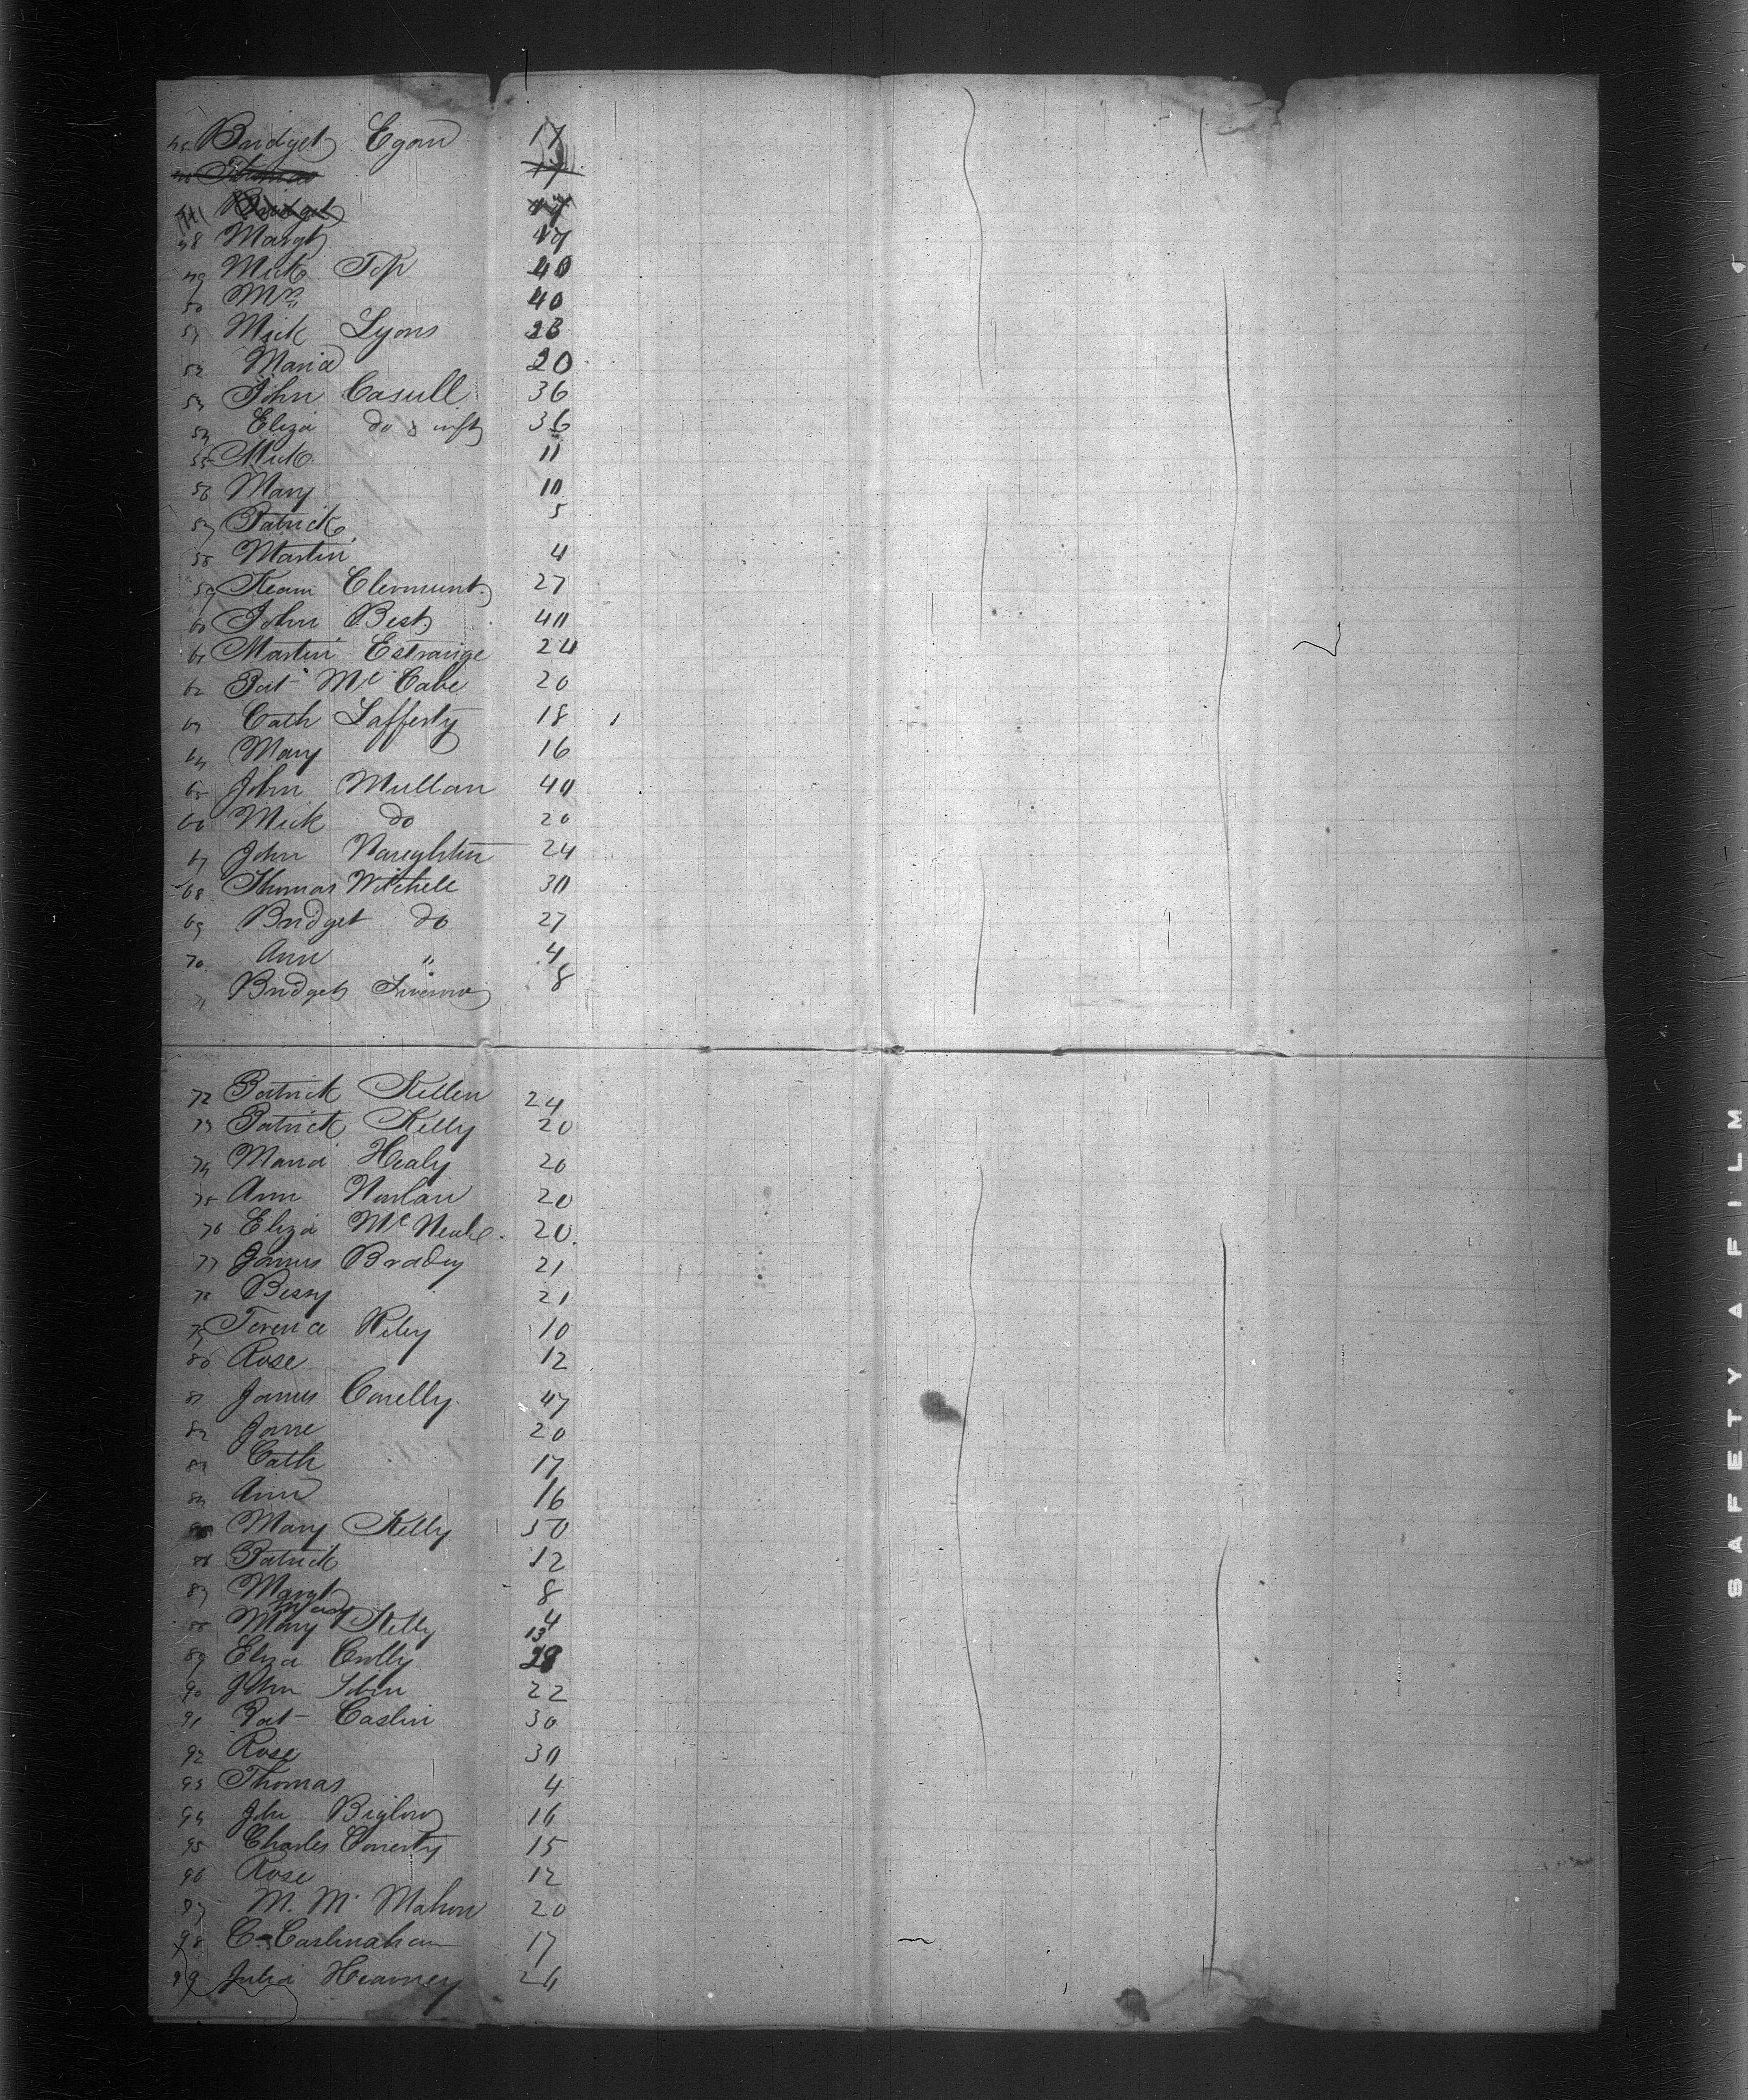 45 Bridget Egan 17
46 17
47 Bridget 17
48 Margt 17
49 Mick Top 40
50 Mrs " 40
51 Mick Lyons 23
52 Maria 20
53 John Casull 36
54 Eliza do & inft 36
55 Mick 11
56 Mary 10
57 Patrick 5
58 Martin 4
59 Keam Clermunt 27
60 John Best 40
61 Martin Estrange 24
62 Pat Mc Cabe 20
63 Cath Lafferty 18
64 Mary 16
65 John Mullan 40
66 Mick do 20
67 John Naughtin 24
68 Thomas Witchell 30
69 Bridget do 27
70 Ann " 4
71 Bridget 8
72 Patrick Killen 24
73 Patrick Kelly 20
74 Maria Healy 20
75 Ann Nowlan 20
76 Eliza Mc Neale 20
77 James Brady 21
78 Bessy 21
79 Terence Riley 10
80 Rose 12
81 James Conelly 47
82 Jane 20
83 Cath 17
84 Ann 16
Mary Kelly 50
86 Patrick 12
87 Margt 8
Mary 4
88 Mary Kelly 13
89 Eliza Crolly 28
90 John Tobin 22
91 Pat Caslin 30
92 Rose 30
93 Thomas 4
94 John Biglow 16
95 Charles Conerty 15
96 Rose 12
97 M. Mc Mahon 20
98 C. Caslinahan 17
99 Julia Hearney 24
SAFETY A FILM